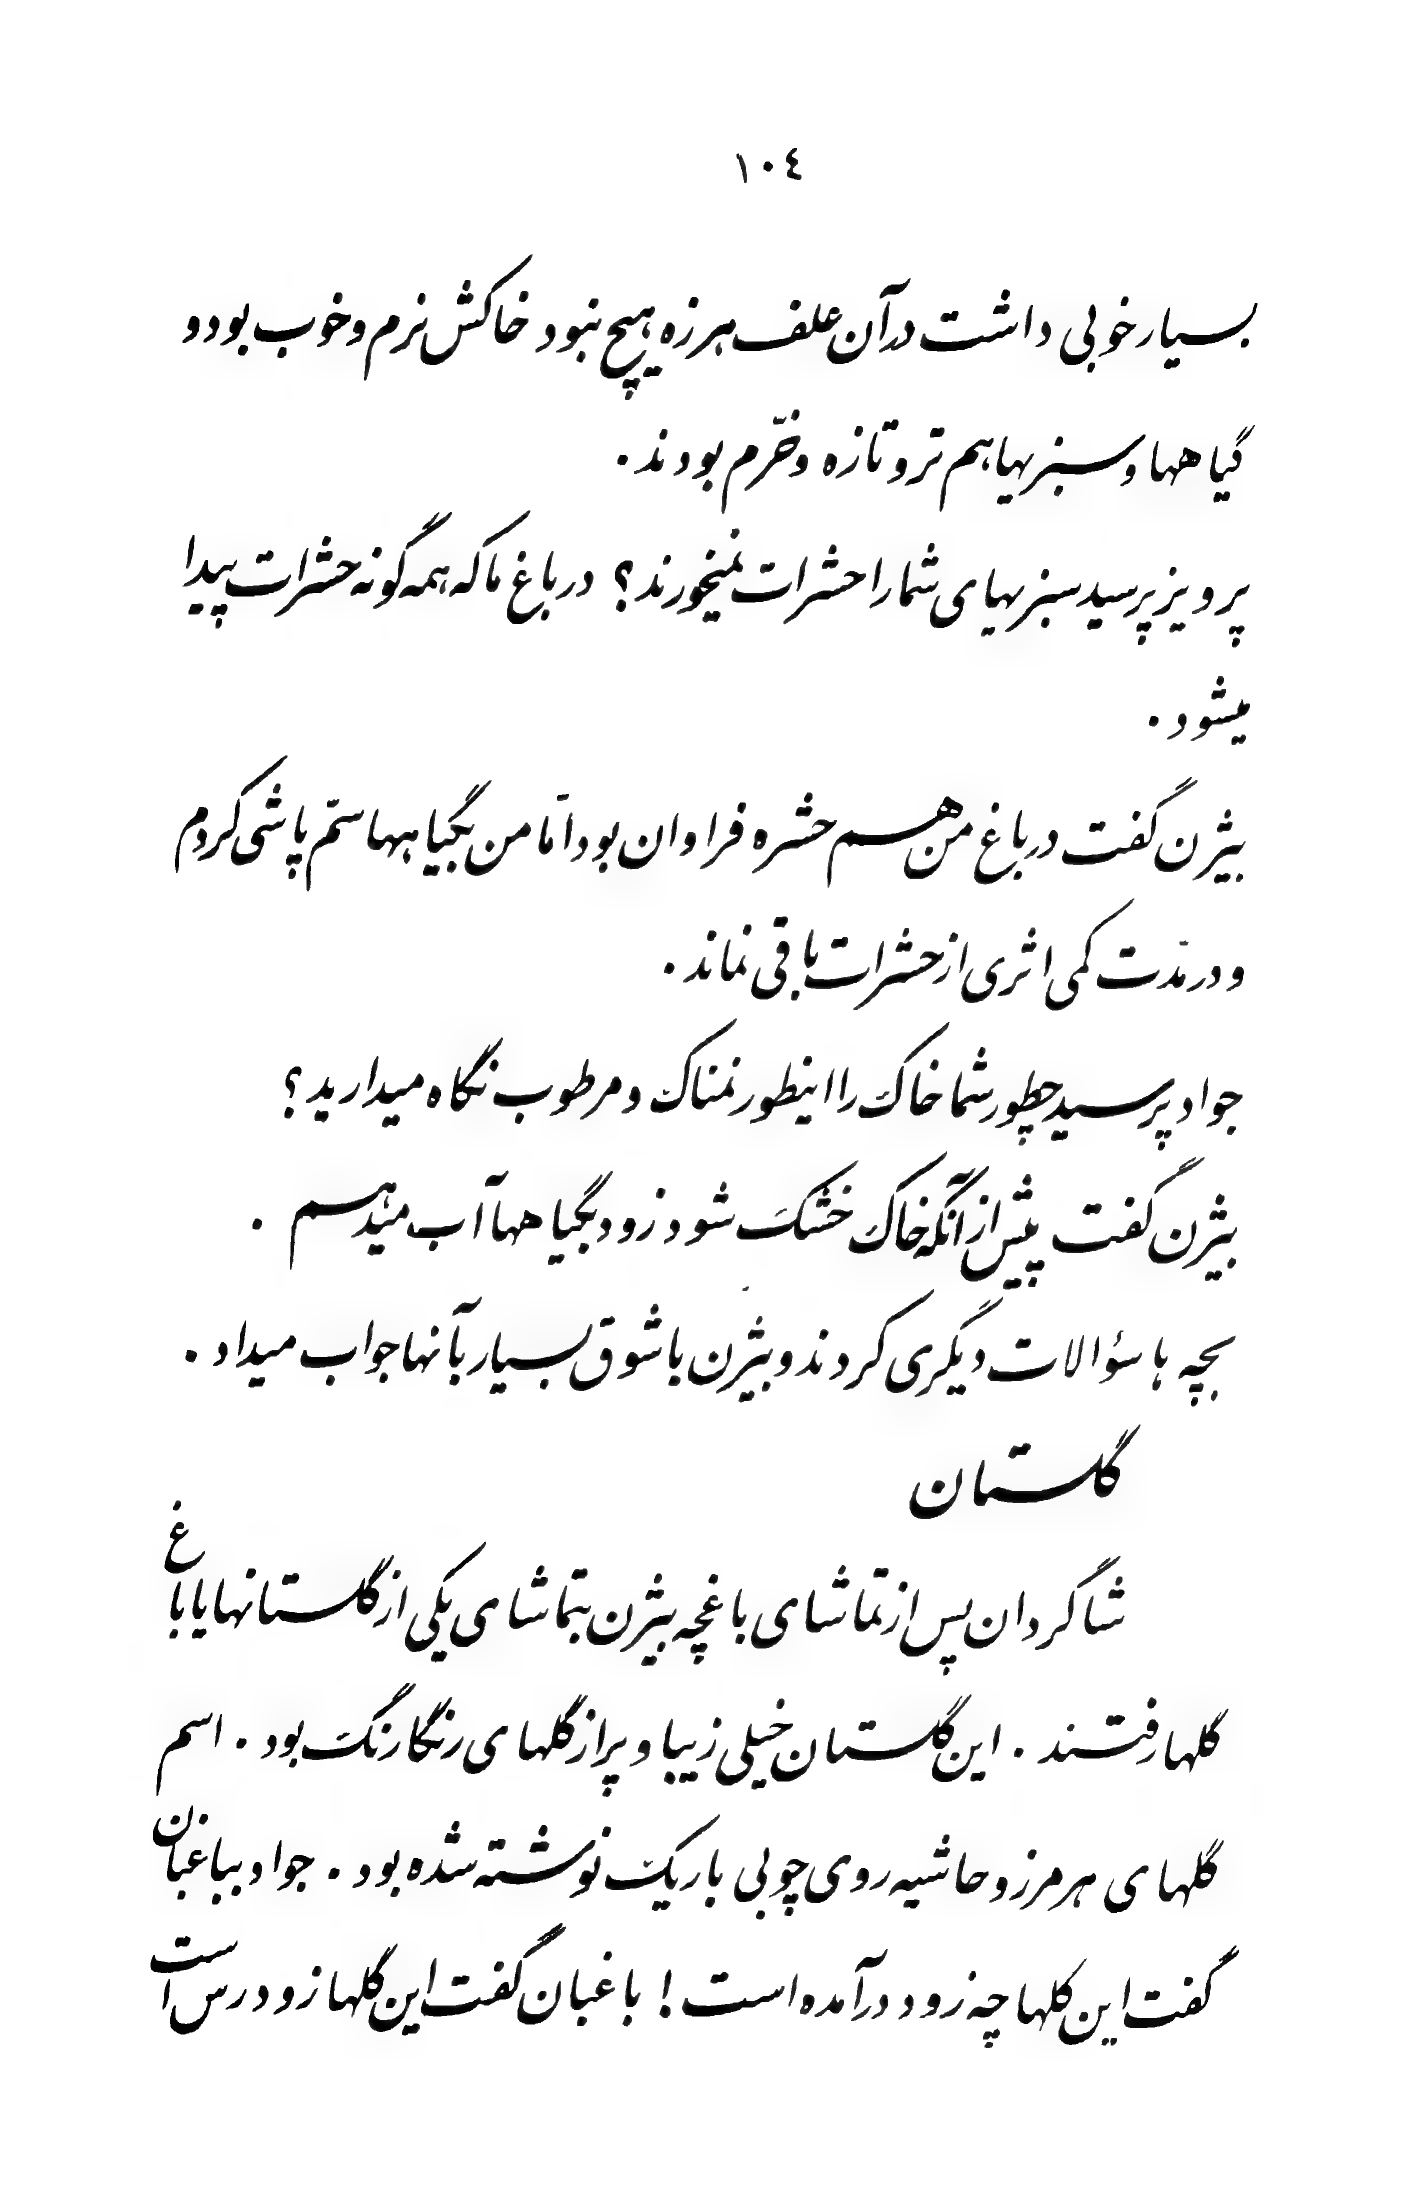 ١٠٤
بسیار خوبی داشت در آن علف هرزه هیچ نبود خاکش نرم و خوب بود و
گیاهها و سبزیها هم تر و تازه و خرّم بودند.
پرویز پرسید سبزیهای شما را حشرات نمیخورند؟ در باغ ما که همه گونه حشرات پیدا
میشود.
بیژن گفت در باغ من هم حشره فراوان بود امّا من بگیاهها سمّ پاشی کردم
و در مدّت کمی اثری از حشرات باقی نماند.
جواد پرسید چطور شما خاک را اینطور نمناک و مرطوب نگاه میدارید؟
بیژن گفت پیش از آنکه خاک خشک شود زود بگیاهها آب میدهم.
بچه ها سؤالات دیگری کردند و بیژن با شوق بسیار بآنها جواب میداد.
گلستان
شاگردان پس از تماشای باغچه بیژن بتماشای یکی از گلستانها یا باغ
گلها رفتند. این گلستان خیلی زیبا و پر از گلهای رنگارنگ بود. اسم
گلهای هر مرز و حاشیه روی چوبی باریک نوشته شده بود. جواد بباغبان
گفت این گلها چه زود در آمده است! باغبان گفت این گلها زود رس است